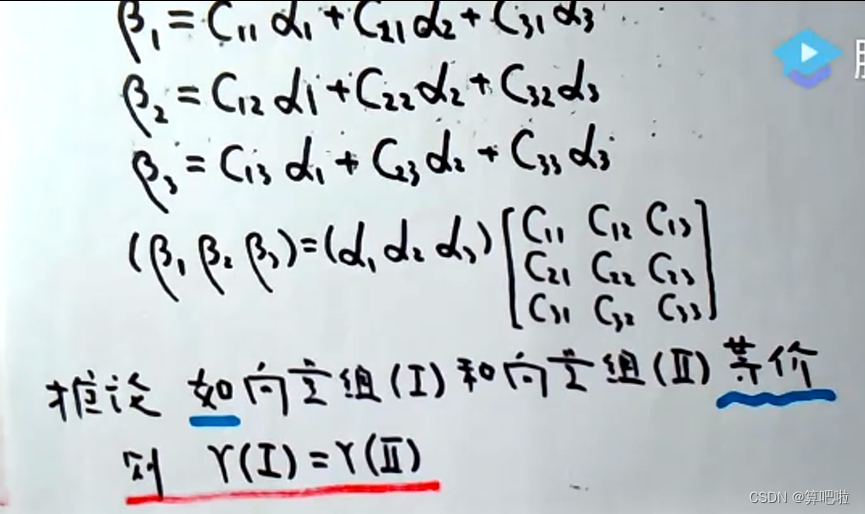 β₁=C₁₁α₁+C₂₁α₂+C₃₁α₃
β₂=C₁₂α₁+C₂₂α₂+C₃₂α₃
β₃=C₁₃α₁+C₂₃α₂+C₃₃α₃
(β₁ β₂ β₃)=(α₁ α₂ α₃) [C₁₁ C₁₂ C₁₃
C₂₁ C₂₂ C₂₃
C₃₁ C₃₂ C₃₃]
推论 如向量组(Ⅰ)和向量组(Ⅱ)等价
则 r(Ⅰ)=r(Ⅱ)
CSDN @算吧啦